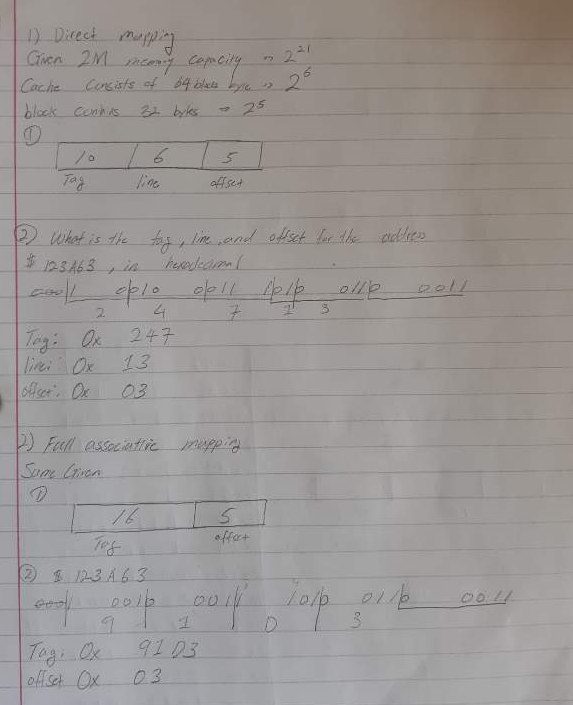 1) Direct mapping
Given 2M memory capacity → 2^21
Cache consists of 64 blocks byte → 2^6
block contains 32 bytes → 2^5
①
10 6 5
Tag line offset
② What is the tag, line, and offset for the address
$ 123A63, in hexadecimal
0011
2 4 7 1 3
Tag: 0x 247
line: 0x 13
offset: 0x 03
2) Full associative mapping
Same Given
①
16 5
Tag offset
② $ 123A63
0011
9 1 D 3
Tag: 0x 91D3
offset 0x 03